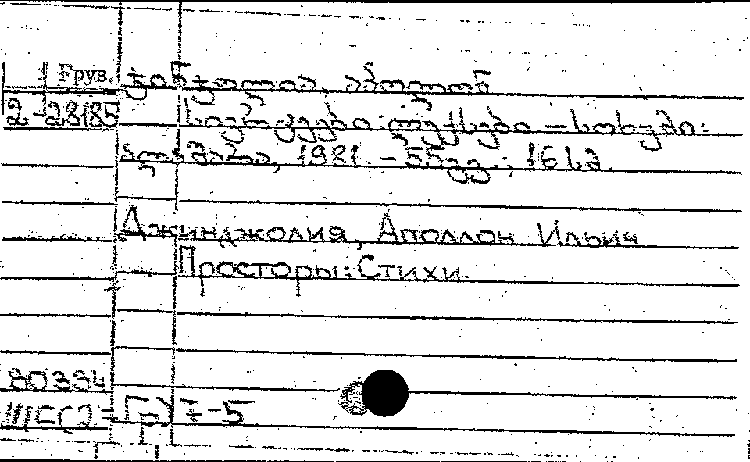 Груз. ჯინჯოლია, აპოლონ
2-28185 სივრცეები: ლექსები. — სოხუმი:
ალაშარა, 1981. - 55გვ.; 16სმ.
Джинджолия, Аполлон Ильич
Просторы: Стихи.
80334
Ш5(2=Гр)7-5